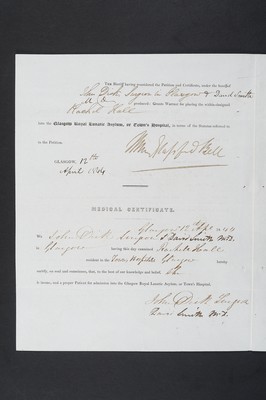 THE SHERIFF having considered the Petition and Certificate, under the hands of
John Dick, Surgeon in Glasgow & David Smith
M.D. produced: Grants Warrant for placing the within-designed
Rachel Hall
into the Glasgow Royal Lunatic Asylum, or Town's Hospital, in terms of the Statutes referred to
in the Petition.
GLASGOW, 12th
April 1844
MEDICAL CERTIFICATE.
Glasgow 12 April 1844
We John Dick Surgeon & David Smith M.D.
in Glasgow having this day examined Rachel Hall
resident in the Towns Hospital Glasgow hereby
certify, on soul and conscience, that, to the best of our knowledge and belief, she
is insane, and a proper PERSON for admission into the Glasgow Royal Lunatic Asylum, or Town's Hospital.
John Dick Surgeon
David Smith M.D.